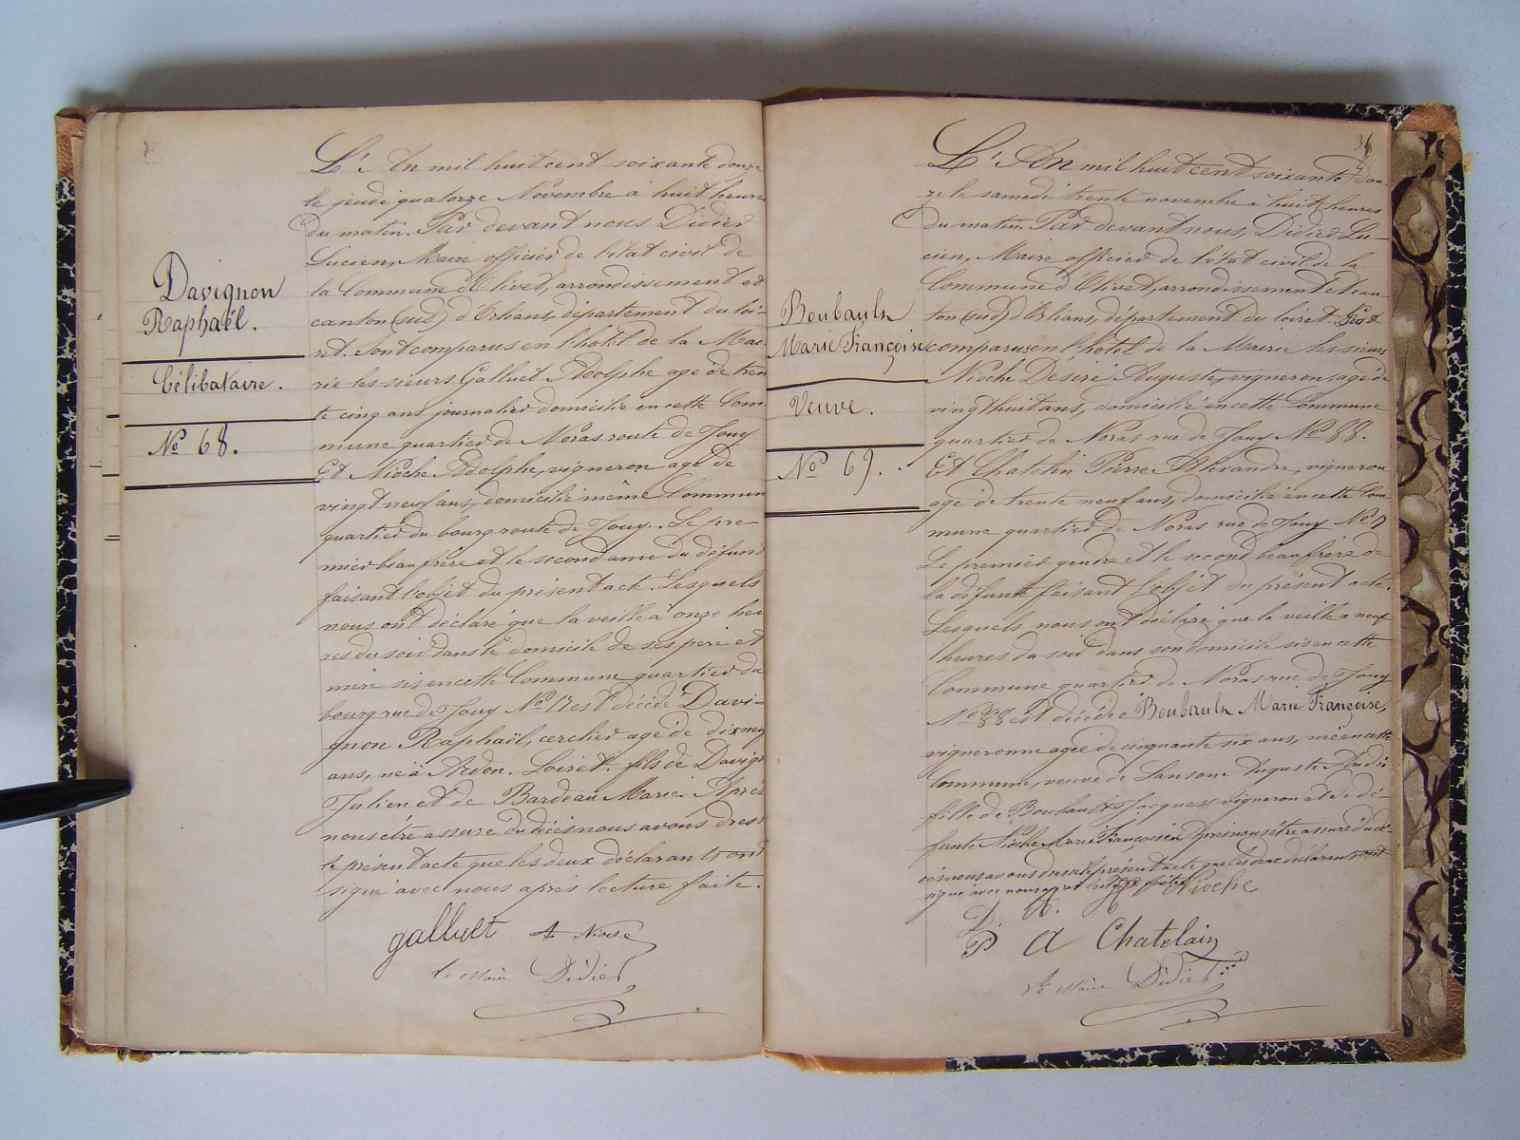 Davignon
Raphaël.
Célibataire.
No 68.
L'An mil huit cent soixante douze
le jeudi quatorze Novembre à huit heures
du matin. Par devant nous Didier
Lucien, Maire officier de l'état civil de
la Commune d'Olivet, arrondissement et
canton (sud) d'Orléans, département du Loi-
ret. Sont comparus en l'hôtel de la Mai
rie les sieurs Galluet Adolphe agé de tren
te cinq ans journalier domicilié en cette Com
mune quartier de Noras route de Jouy
Et Nioche Adolphe, vigneron agé de
vingt neuf ans, domicilié même Commun
quartier du bourg route de Jouy. Le pre-
mier beau frère et le second ami du défunt
faisant l'objet du présent acte. Lesquels
nous ont déclaré que la veille à onze heu
res du soir dans le domicile de ses père et
mère sis en cette Commune quartier du
bourg rue de Jouy No 17 est décédé Davi-
gnon Raphaël, cerclier agé de dix neuf
ans, né à Ardon. Loiret. fils de Davign
Julien et de Bardeau Marie. Après
nous être assuré du décès nous avons dressé
le présent acte que les deux déclarants ont
signé avec nous après lecture faite.
galluet A Nioche
Le Maire Didier
36
Boubault
Marie Françoise
Veuve.
No 69.
L'An mil huit cent soixante dou
ze le samedi trente novembre à huit heures
du matin. Par devant nous, Didier Lu-
cien, Maire officier de l'état civil de la
Commune d'Olivet, arrondissement et can-
ton (sud) d'Orléans, département du Loiret. Sont
comparus en l'hôtel de la Mairie les sieurs
Nioche Désiré Auguste, vigneron, agé de
vingt huit ans, domicilié en cette Commune
quartier de Noras rue de Jouy No 88.
Et Chatelin Pierre Alexandre, vigneron
agé de trente neuf ans, domicilié en cette Com
mune quartier de Noras rue de Jouy No
Le premier gendre et le second beau frère de
la défunte faisant l'objet du présent acte.
Lesquels nous ont déclaré que la veille à neuf
heures du soir dans son domicile sis en cette
Commune quartier de Noras rue de Jouy
No 88 est décédée Boubault Marie Françoise,
vigneronne agée de cinquante six ans, née en cette
Commune, veuve de Sanson Auguste André
fille de Boubault Jacques vigneron et de dé-
funte Nioche Marie Françoise. Après nous être assuré du dé-
cès nous avons dressé le présent acte que les deux déclarants ont
signé avec nous après lecture faite
D. A. Nioche
P A Chatelain
Le Maire Didier